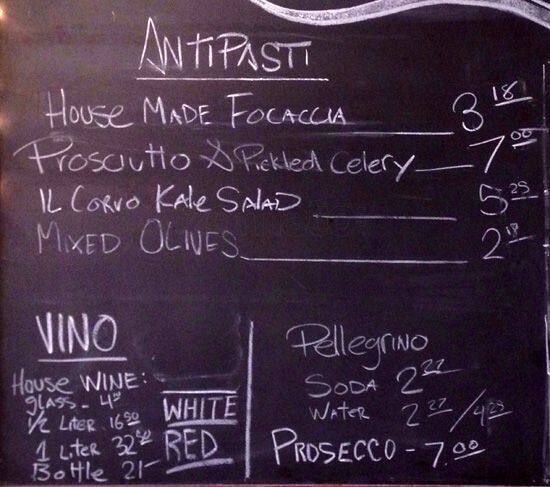 ANTIPASTI
HOUSE MADE FOCACCIA 3 18
Prosciutto & Pickled Celery 7 00
IL CORVO Kale SALAD 5 25
MIXED OLIVES 2
VINO
House WINE:
glass - 4
1/2 Liter 16 50
1 Liter 32 50
Bottle 21-
WHITE
RED
Pellegrino
SODA 2 27
WATER 2 27 / 4 23
PROSECCO - 7.00